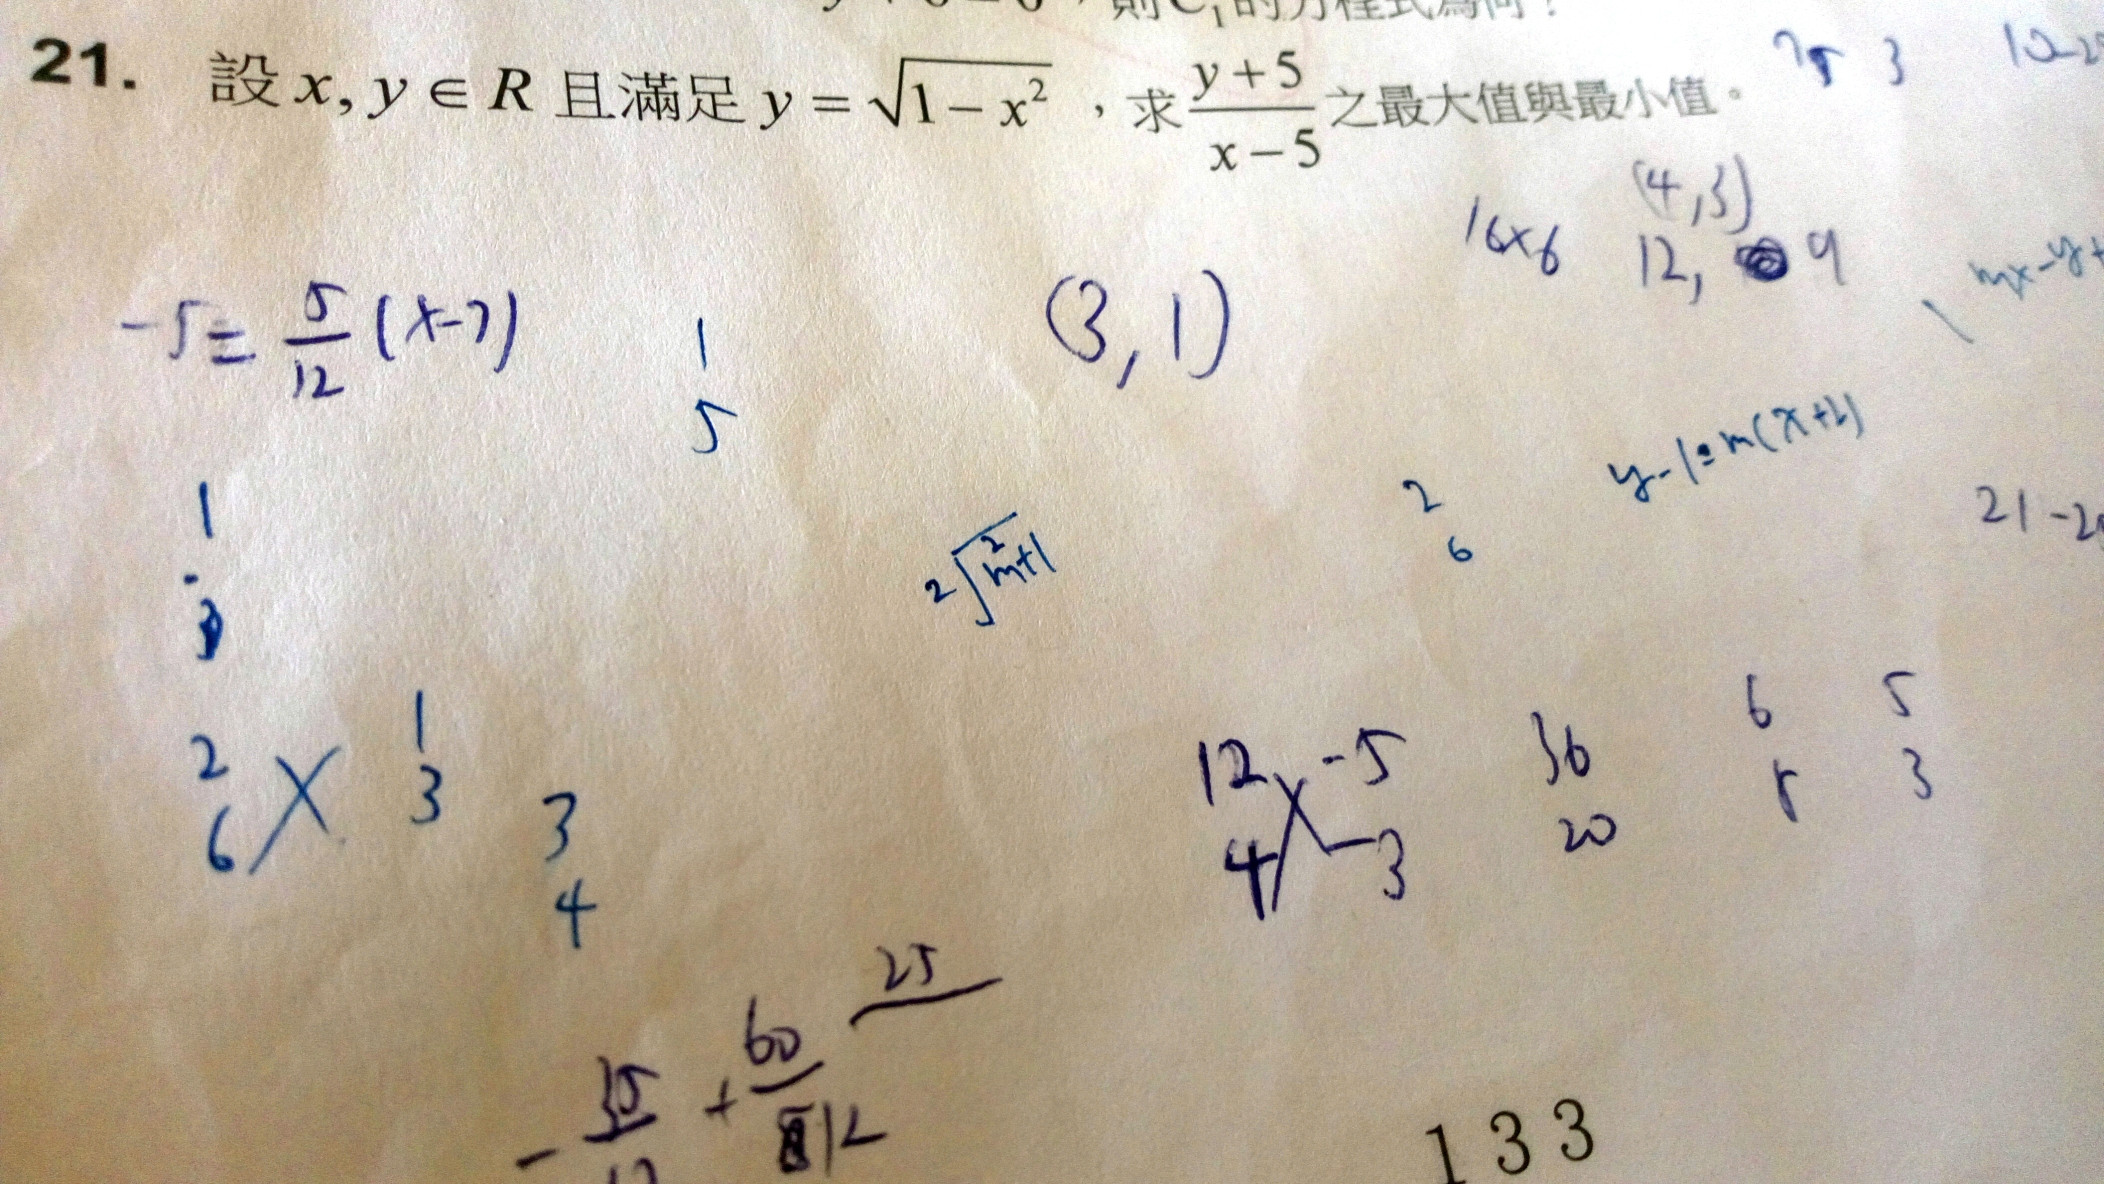 則C₁的方程式為何？
21. 設 x, y ∈ R 且滿足 y = √(1 − x²) ，求 (y + 5)/(x − 5) 之最大值與最小值。
3
(4,3)
16×6
12, 9
-5 = 5/12 (x-7)
1
5
(3,1)
mx-y+
1
3
2√(m²+1)
2
6
21-2
2 1
6 3
3
4
12 -5
4 -3
36
20
6 5
3
25
60
12
133